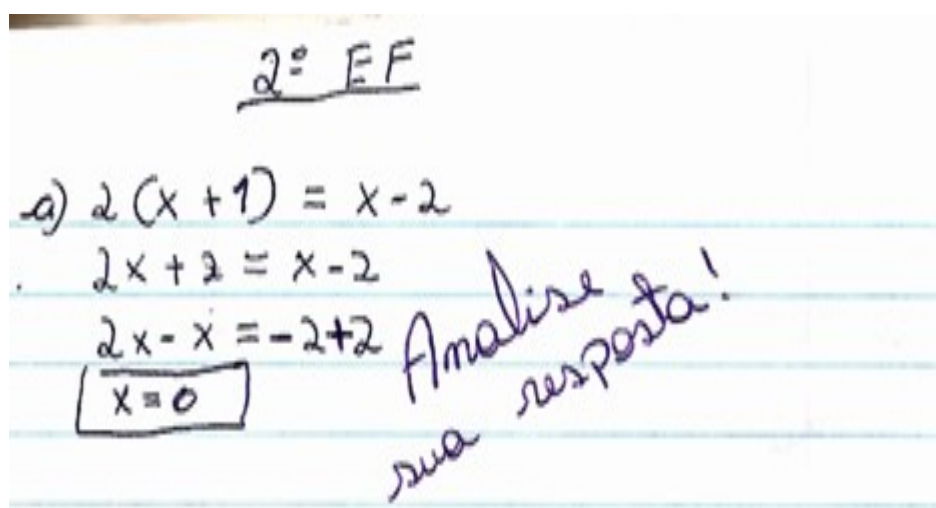 2º EF
a) 2(x + 1) = x - 2
2x + 2 = x - 2
2x - x = -2+2
x = 0
Analise
sua resposta!